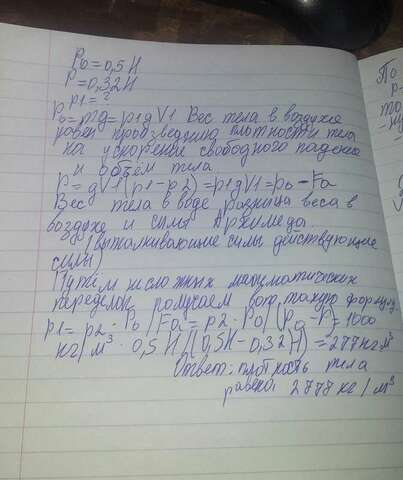 P₀=0,5 Н
P=0,32Н
p1=?
P₀=mg=p1gV1 Вес тела в воздухе
равен произведению плотности тела
на ускорение свободного падения
и объём тела
P=gV1(p1-p2)=p1gV1=p₀-Fa
Вес тела в воде разница веса в
воздухе и силы Архимеда
(выталкивающие силы действующие
силы)
Путём несложных математических
переделок получаем вот такую формулу
p1=p2·P₀/Fa=p2·P₀/(P₀-P)=1000
кг/м³·0,5Н/(0,5Н-0,32Н)=277кгм³
Ответ: плотность тела
равена 2777 кг/м³
По